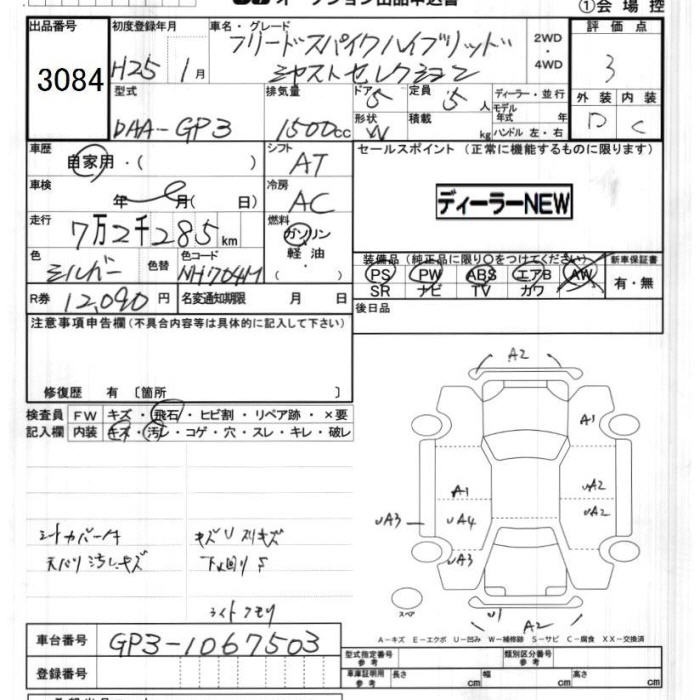 オークション出品申込書
①会場控
出品番号
3084
初度登録年月
H25 1月
車名・グレード
フリードスパイクハイブリッド
ジャストセレクション
2WD・4WD
評価点
3
型式
DAA-GP3
排気量
1500cc
ドア
5
形状
W
定員
5人
積載
kg
ディーラー・並行
モデル年式 年
ハンドル 左・右
外装
D
内装
C
車歴
自家用・( )
シフト
AT
セールスポイント (正常に機能するものに限ります)
車検
年 月( 日)
冷房
AC
ディーラーNEW
走行
7万2千285km
燃料
ガソリン
軽油
( )
色
シルバー
色替
色コード
NH704M
装備品 (純正品に限り○をつけてください)
新車保証書
PS PW ABS エアB AW
SR ナビ TV カワ
有・無
R券
12,090円
名変通知期限 月 日
後日品
注意事項申告欄(不具合内容等は具体的に記入して下さい)
修復歴 有 〔箇所 〕
検査員記入欄
FW キズ・飛石・ヒビ割・リペア跡・×要
内装 キズ・汚レ・コゲ・穴・スレ・キレ・破レ
A2
A1
A1
UA2
UA3
UA4
UA2
UA3
シートカバー付
キズUスリキズ
天バリ汚レキズ
下廻りS
ライトクモリ
スペア
U1
A2
A-キズ E-エクボ U-凹み W-補修跡 S-サビ C-腐食 XX-交換済
車台番号
GP3-1067503
型式指定番号 参考
類別区分番号 参考
登録番号
車庫証明用 参考
長さ cm
幅 cm
高さ cm